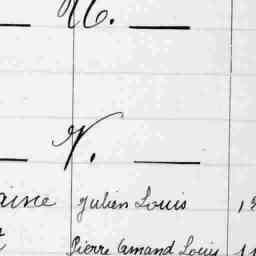 U.
V.
aine Julien Louis 1
Pierre Amand Louis 11